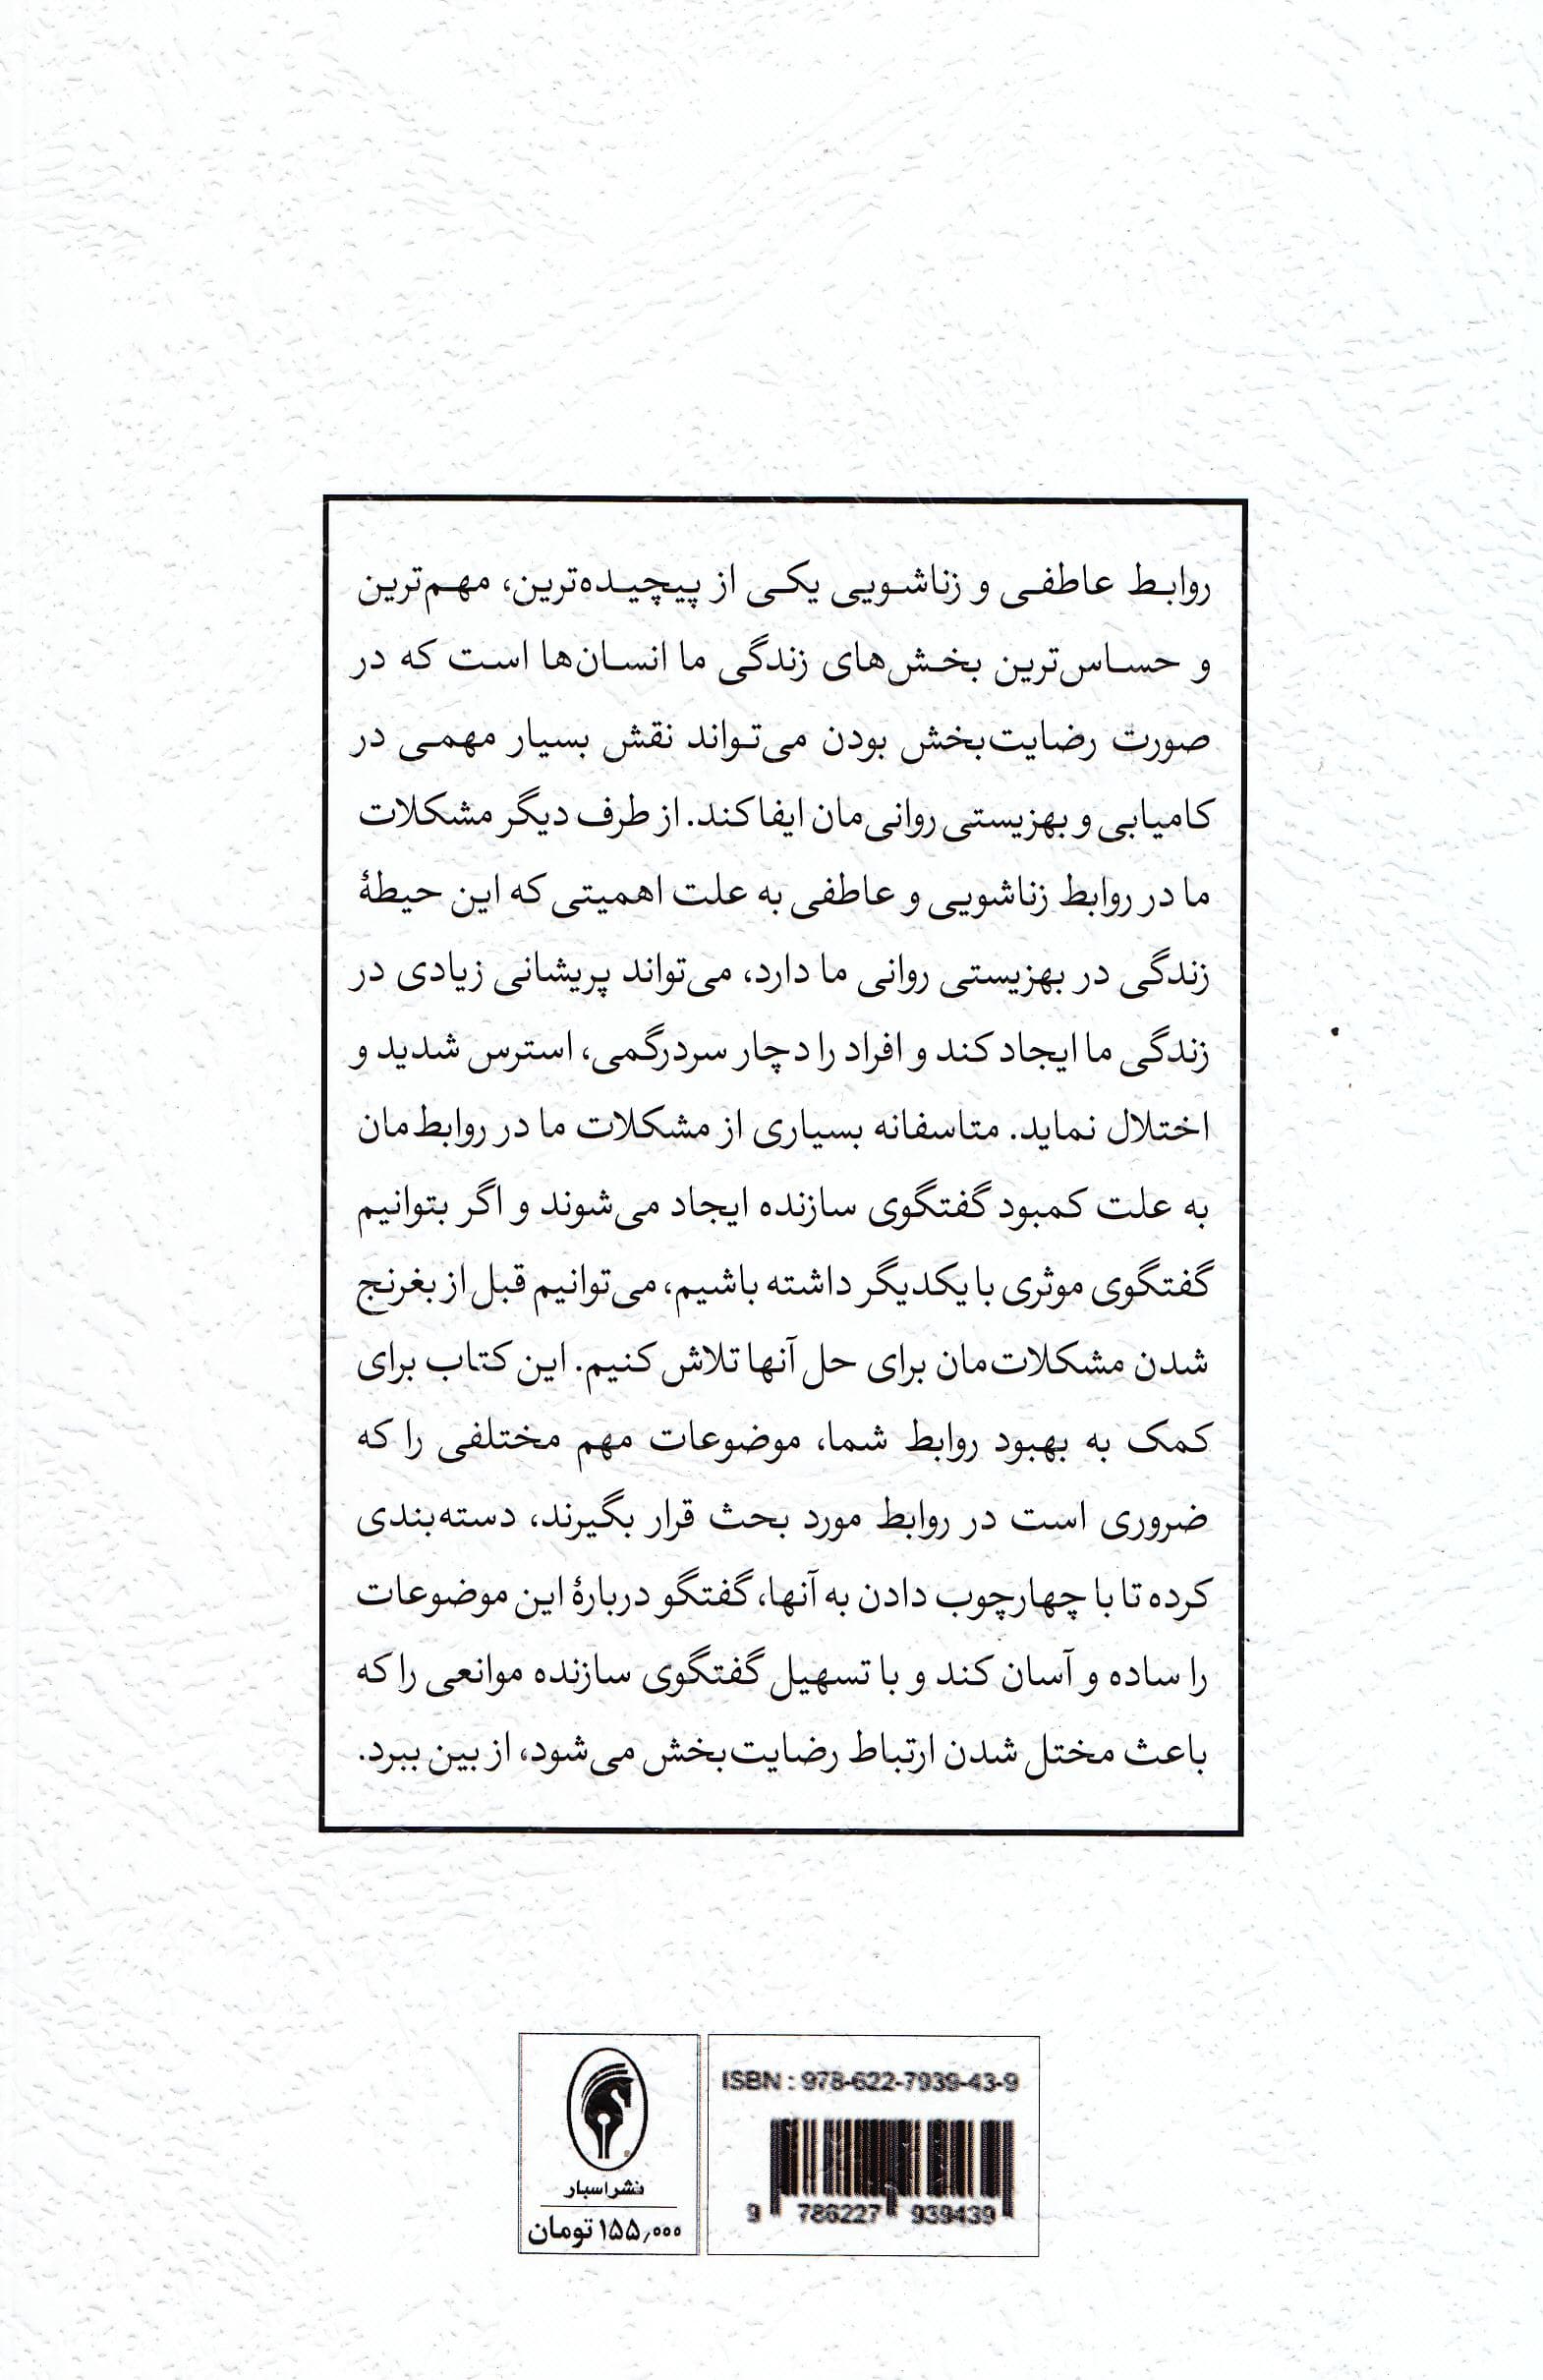 روابط عاطفی و زناشویی یکی از پیچیده‌ترین، مهم‌ترین
و حساس‌ترین بخش‌های زندگی ما انسان‌ها است که در
صورت رضایت‌بخش بودن می‌تواند نقش بسیار مهمی در
کامیابی و بهزیستی روانی‌مان ایفا کند. از طرف دیگر مشکلات
ما در روابط زناشویی و عاطفی به علت اهمیتی که این حیطهٔ
زندگی در بهزیستی روانی ما دارد، می‌تواند پریشانی زیادی در
زندگی ما ایجاد کند و افراد را دچار سردرگمی، استرس شدید و
اختلال نماید. متاسفانه بسیاری از مشکلات ما در روابط‌مان
به علت کمبود گفتگوی سازنده ایجاد می‌شوند و اگر بتوانیم
گفتگوی موثری با یکدیگر داشته باشیم، می‌توانیم قبل از بغرنج
شدن مشکلات‌مان برای حل آنها تلاش کنیم. این کتاب برای
کمک به بهبود روابط شما، موضوعات مهم مختلفی را که
ضروری است در روابط مورد بحث قرار بگیرند، دسته‌بندی
کرده تا با چهارچوب دادن به آنها، گفتگو دربارهٔ این موضوعات
را ساده و آسان کند و با تسهیل گفتگوی سازنده موانعی را که
باعث مختل شدن ارتباط رضایت‌بخش می‌شود، از بین ببرد.
ISBN : 978-622-7939-43-9
9 786227 939439
نشر اسبار
۱۵۵٫۰۰۰ تومان